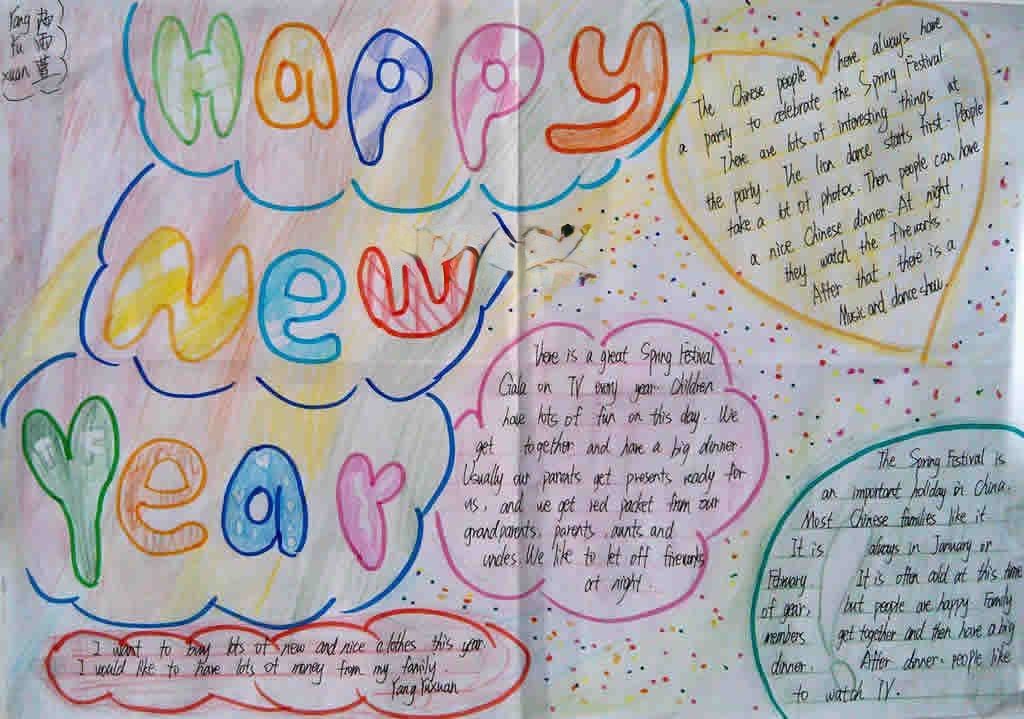 Yang
Yu 雨
xuan 萱
Happy
New
Year
The Chinese people here always have
a party to celebrate the Spring Festival.
There are lots of interesting things at
the party. The lion dance starts first. People
take a lot of photos. Then people can have
a nice Chinese dinner. At night,
they watch the fireworks.
After that, there is a
Music and dance show.
There is a great Spring Festival
Gala on TV every year. Children
have lots of fun on this day. We
get together and have a big dinner.
Usually our parents get presents ready for
us, and we get red packet from our
grandparents, parents, aunts and
uncles. We like to let off fireworks
at night.
The Spring Festival is
an important holiday in China.
Most Chinese families like it
It is always in January or
February It is often cold at this time
of year, but people are happy. Family
members get together and then have a big
dinner. After dinner, people like
to watch TV.
I want to buy lots of new and nice clothes this year.
I would like to have lots of money from my family.
Yang Yuxuan